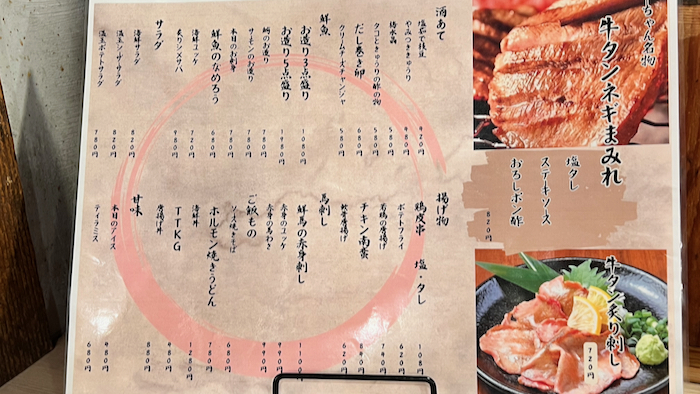 ちゃん名物
牛タンネギまみれ
塩タレ
ステーキソース
おろしポン酢
820円
牛タン炙り刺し
720円
酒あて
塩茹で枝豆
やみつききゅうり
梅水晶
タコときゅうりの酢の物
だし巻き卵
クリームチーズチャンジャ
420円
480円
580円
580円
680円
580円
鮮魚
お造り3点盛り
お造り5点盛り
鯛のお造り
サーモンのお造り
本日のお刺身
鮮魚のなめろう
海鮮ユッケ
炙りシメサバ
1080円
1980円
780円
780円
780円
680円
720円
980円
サラダ
海鮮サラダ
温玉シーザーサラダ
温玉ポテトサラダ
820円
820円
780円
揚げ物
鶏皮串 塩・タレ
ポテトフライ
若鶏の唐揚げ
チキン南蛮
軟骨唐揚げ
620円
740円
890円
620円
馬刺し
鮮馬の赤身刺し
赤身のユッケ
赤身の馬わさ
1100円
990円
990円
ご飯もの
ソース焼きそば
ホルモン焼きうどん
海鮮丼
TTKG
唐揚げ丼
680円
780円
1280円
480円
880円
甘味
本日のアイス
ティラミス
480円
680円